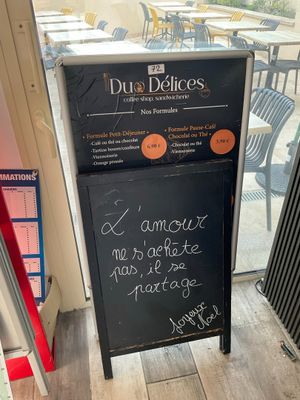 72
Duo Délices
coffee shop, sandwicherie
Nos Formules
Formule Petit-Déjeuner
- Café ou thé ou chocolat
- Tartine beurre/confiture
- Viennoiserie
- Orange pressée
6,90 €
Formule Pause-Café
Chocolat ou Thé
- Chocolat ou thé
- Viennoiserie
3,50 €
L'amour
ne s'achète
pas, il se
partage
Joyeux
Noel